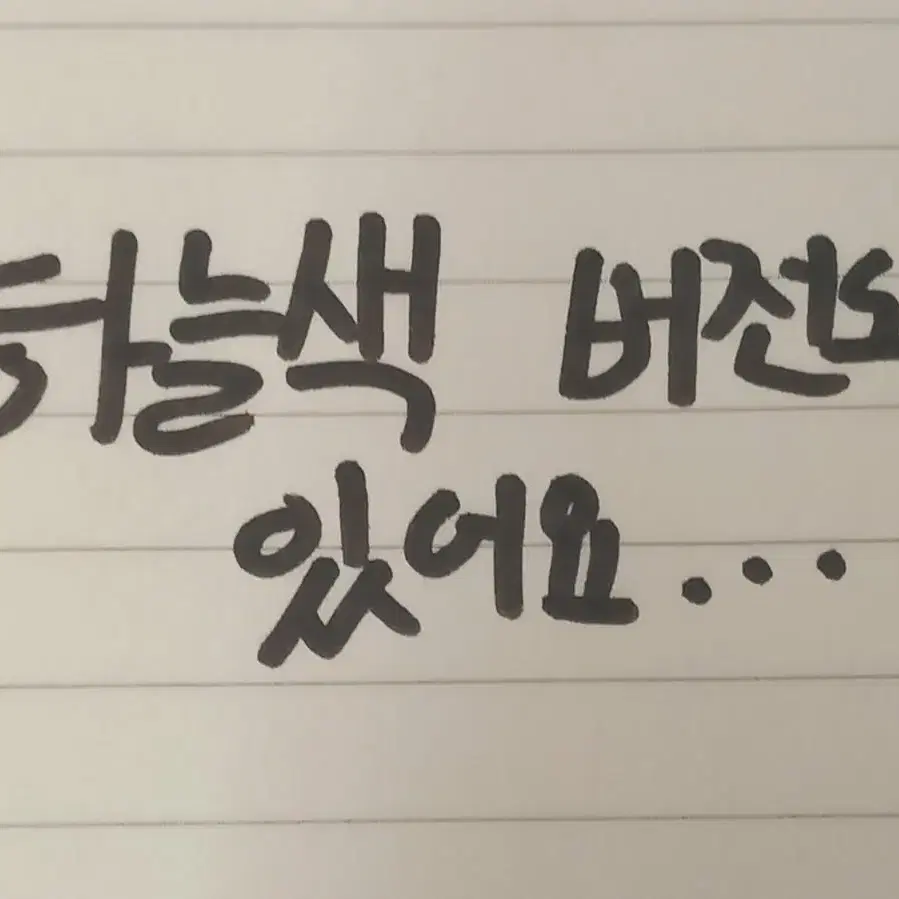 하늘색 버전도
있어요...